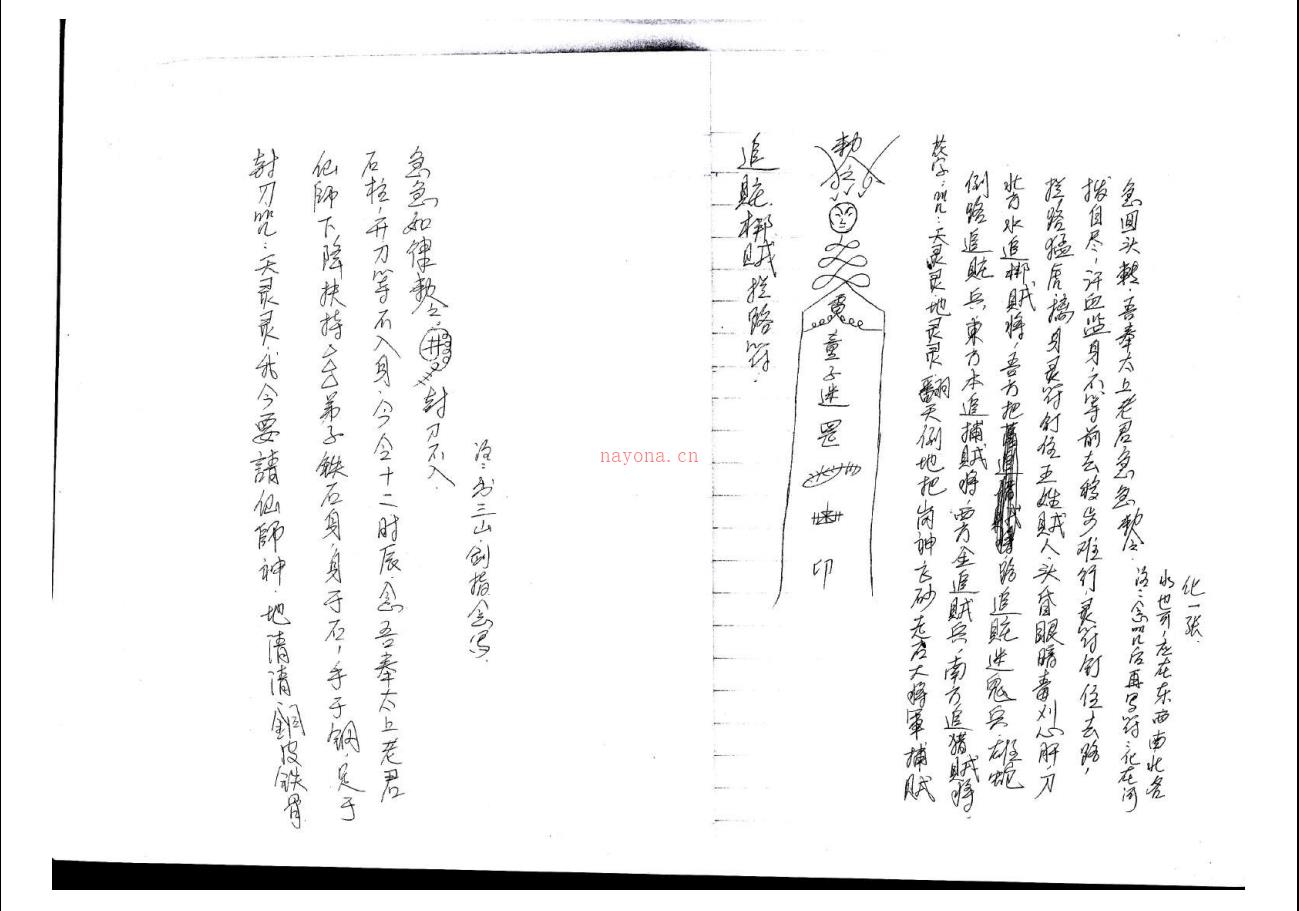 封刀咒:天灵灵,我今要請仙師神,地清清,銅皮铁骨
仙師下降扶持 弟子铁石身,身于石,手于钢,足于
石柱,开刀等不入身,今令十二时辰,念吾奉太上老君
急急如律敕令. 井 封刀不入.
注:书三山,剑指念写.
追賍梆贼拦路符.
勅令
童子迷罡
印
咒:天灵灵地灵灵翻天倒地把崗神飞砂走石大将軍捕贼
倒路追賍兵,東方木追捕贼将,西方金追贼兵,南方追猎贼将,
北方水追梆贼将,吾方把 路追賍迷鬼兵,雄蛇
拦路猛虎 身灵符钉住王姓贼人,头昏眼暗毒刈心肝,刀
拨自尽,汗血 身不等前去移步难行,灵符钉住去路,
急回头 吾奉太上老君急急勅令.
注:念咒后再写符:化在河
水也可,在在东西南北各
化一张.
nayona.cn